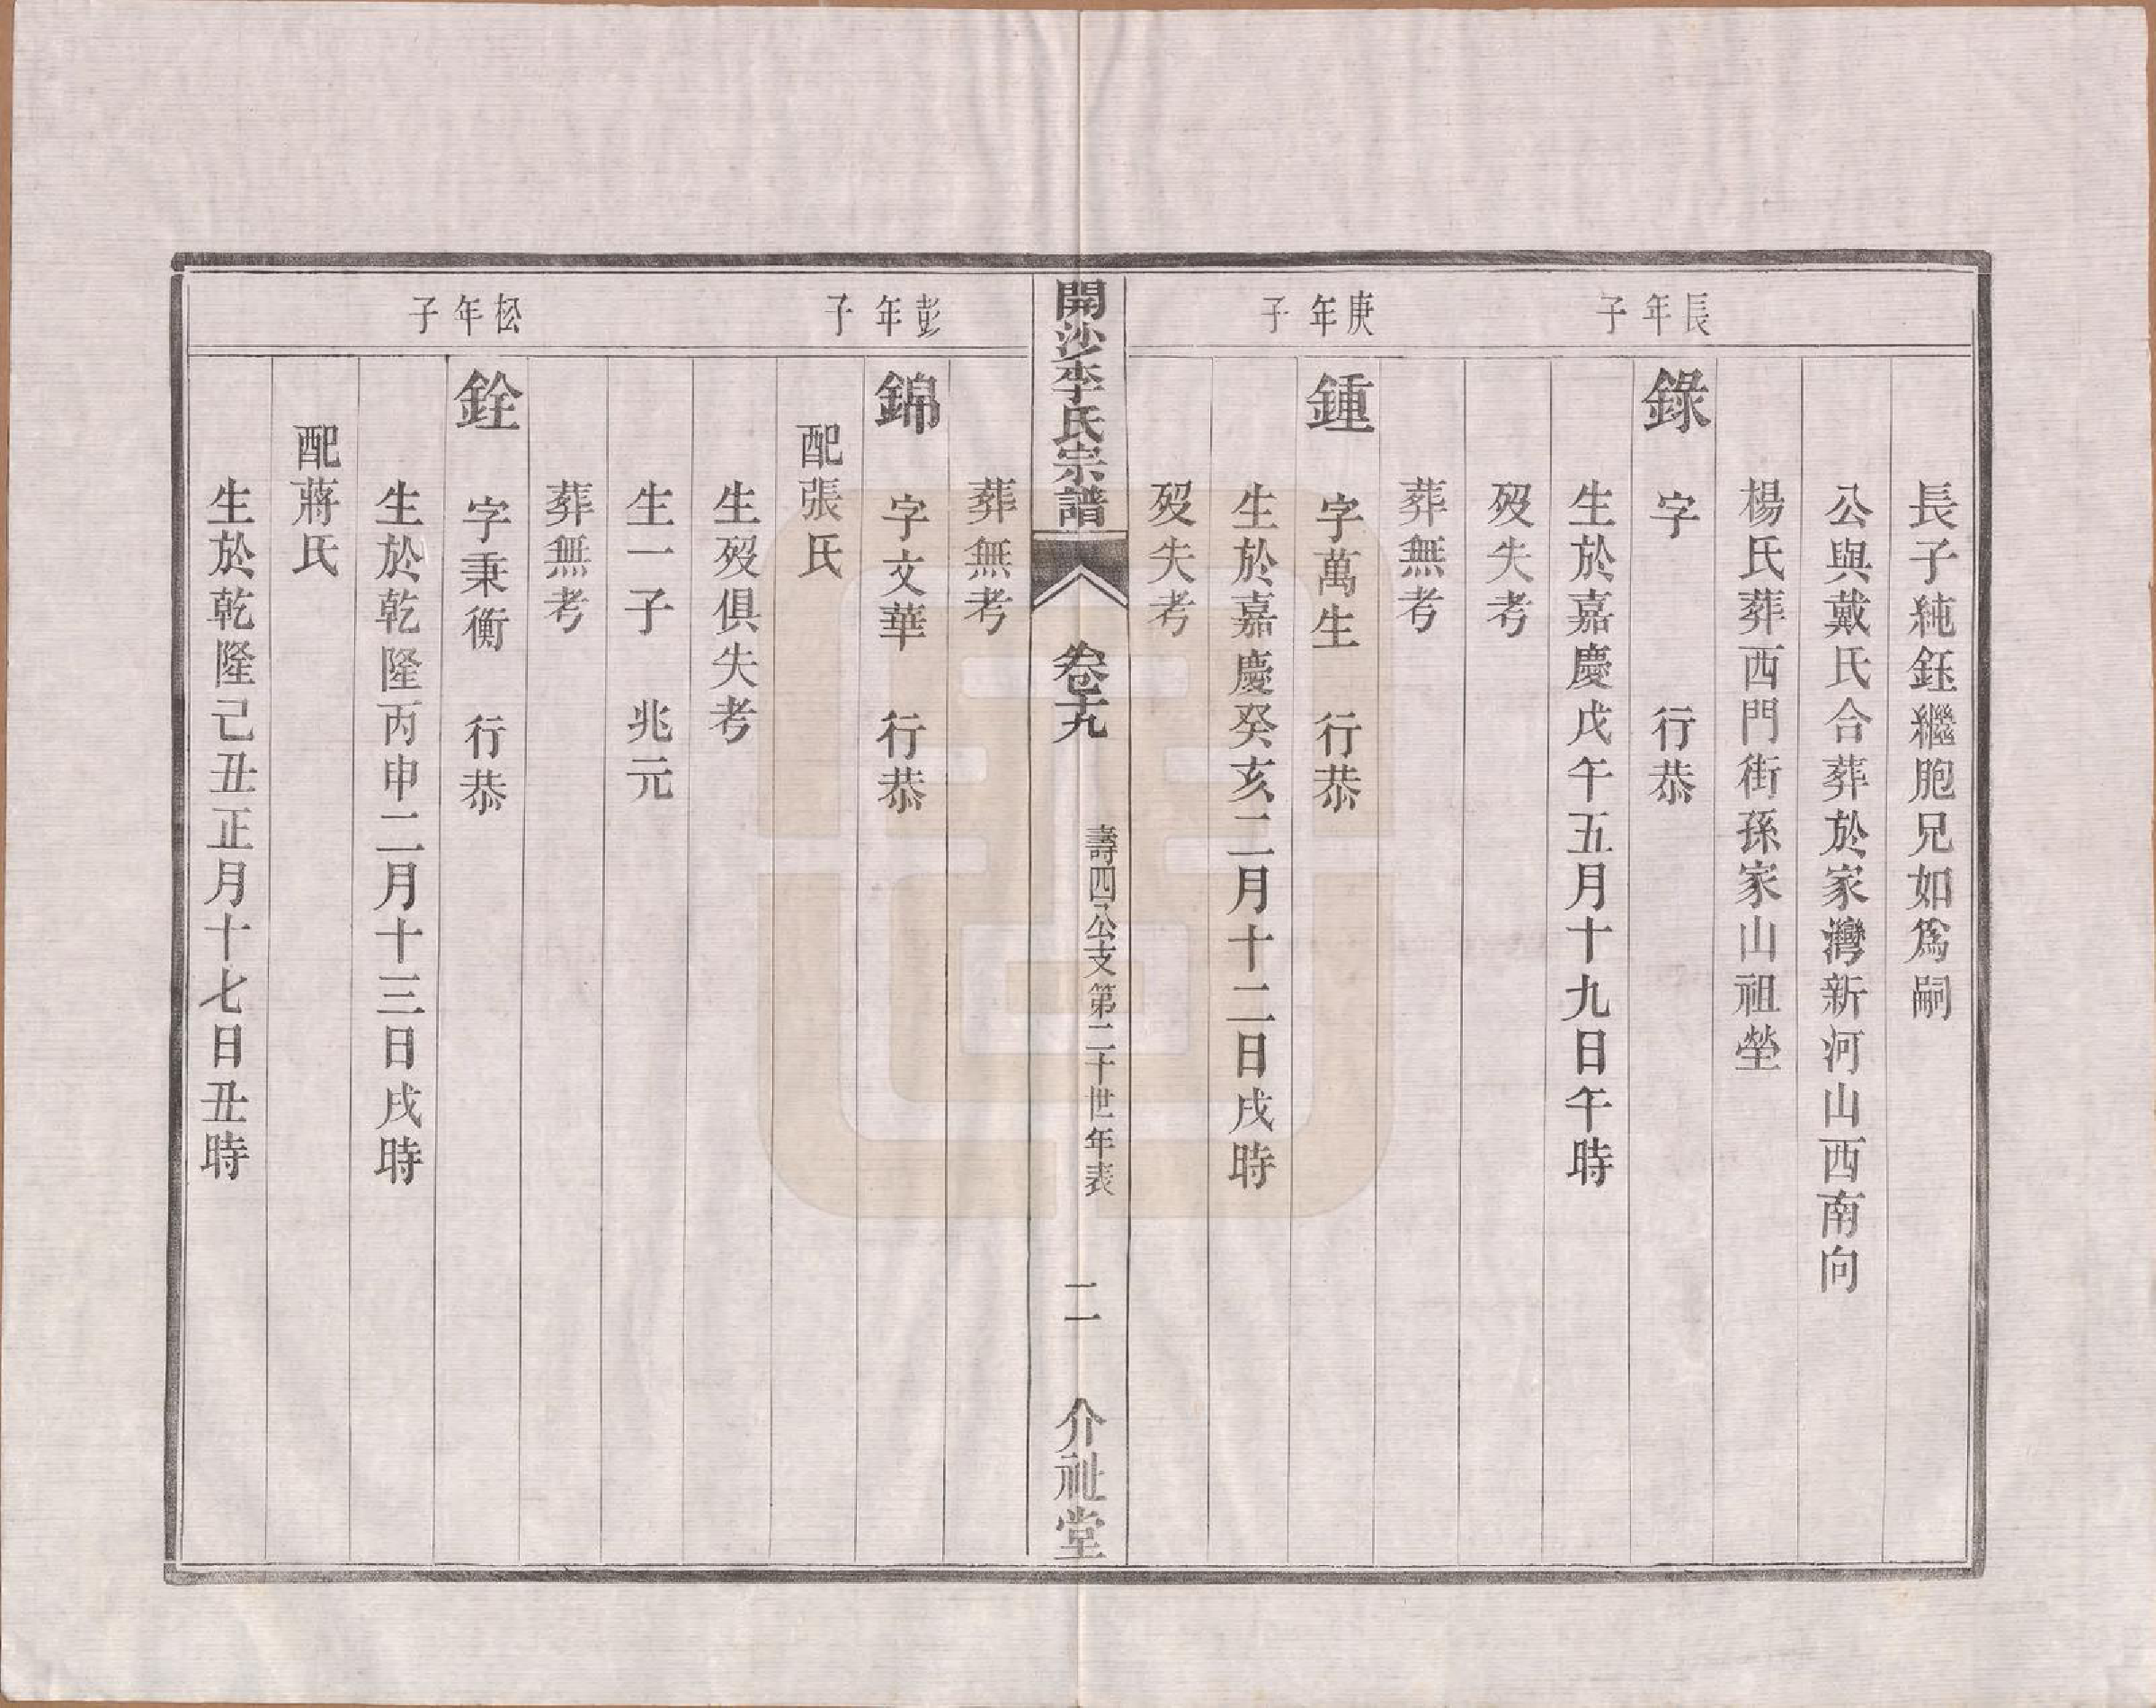 長子純鈺繼胞兄如爲嗣
公與戴氏合葬於家灣新河山西南向
楊氏葬西門街孫家山祖塋
長年子
錄　字　　　行恭
生於嘉慶戊午五月十九日午時
歿失考
葬無考
庚年子
鍾　字萬生　行恭
生於嘉慶癸亥二月十二日戌時
歿失考
開沙李氏宗譜　卷十九　壽四公支第二十世年表　二　介祉堂
葬無考
彭年子
錦　字文華　行恭
配張氏
生歿俱失考
生一子　兆元
葬無考
松年子
銓　字秉衡　行恭
生於乾隆丙申二月十三日戌時
配蔣氏
生於乾隆己丑正月十七日丑時